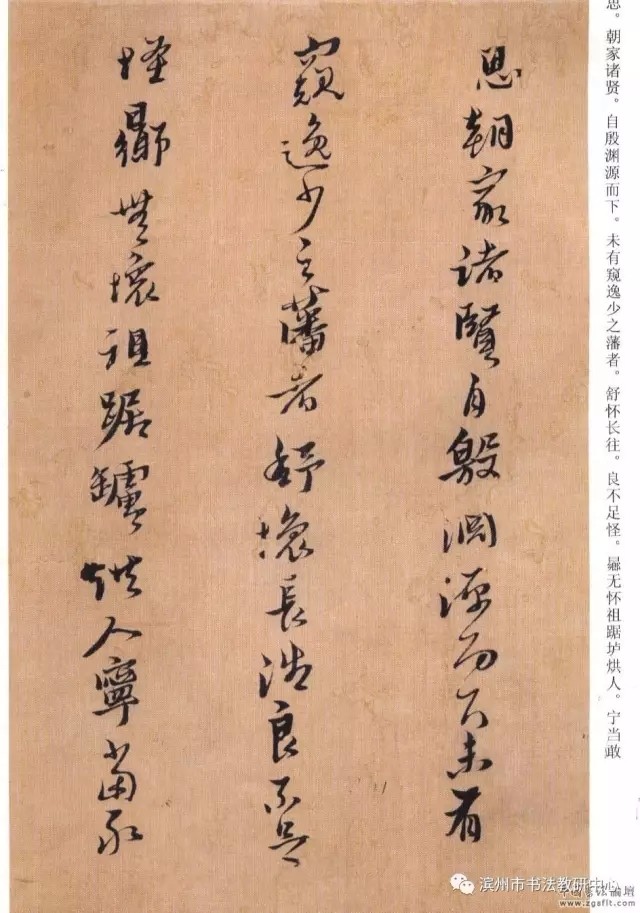 思。朝家诸贤。自殷渊源而下。未有窥逸少之藩者。舒怀长往。良不足怪。曏无怀祖踞垆烘人。宁当敢
思朝家諸賢自殷淵源而下未有
窺逸少之藩者舒懷長往良不足
怪曏無懷祖踞罏烘人寧當敢
滨州市书法教研中心
中国書法論壇
www.zgsflt.com